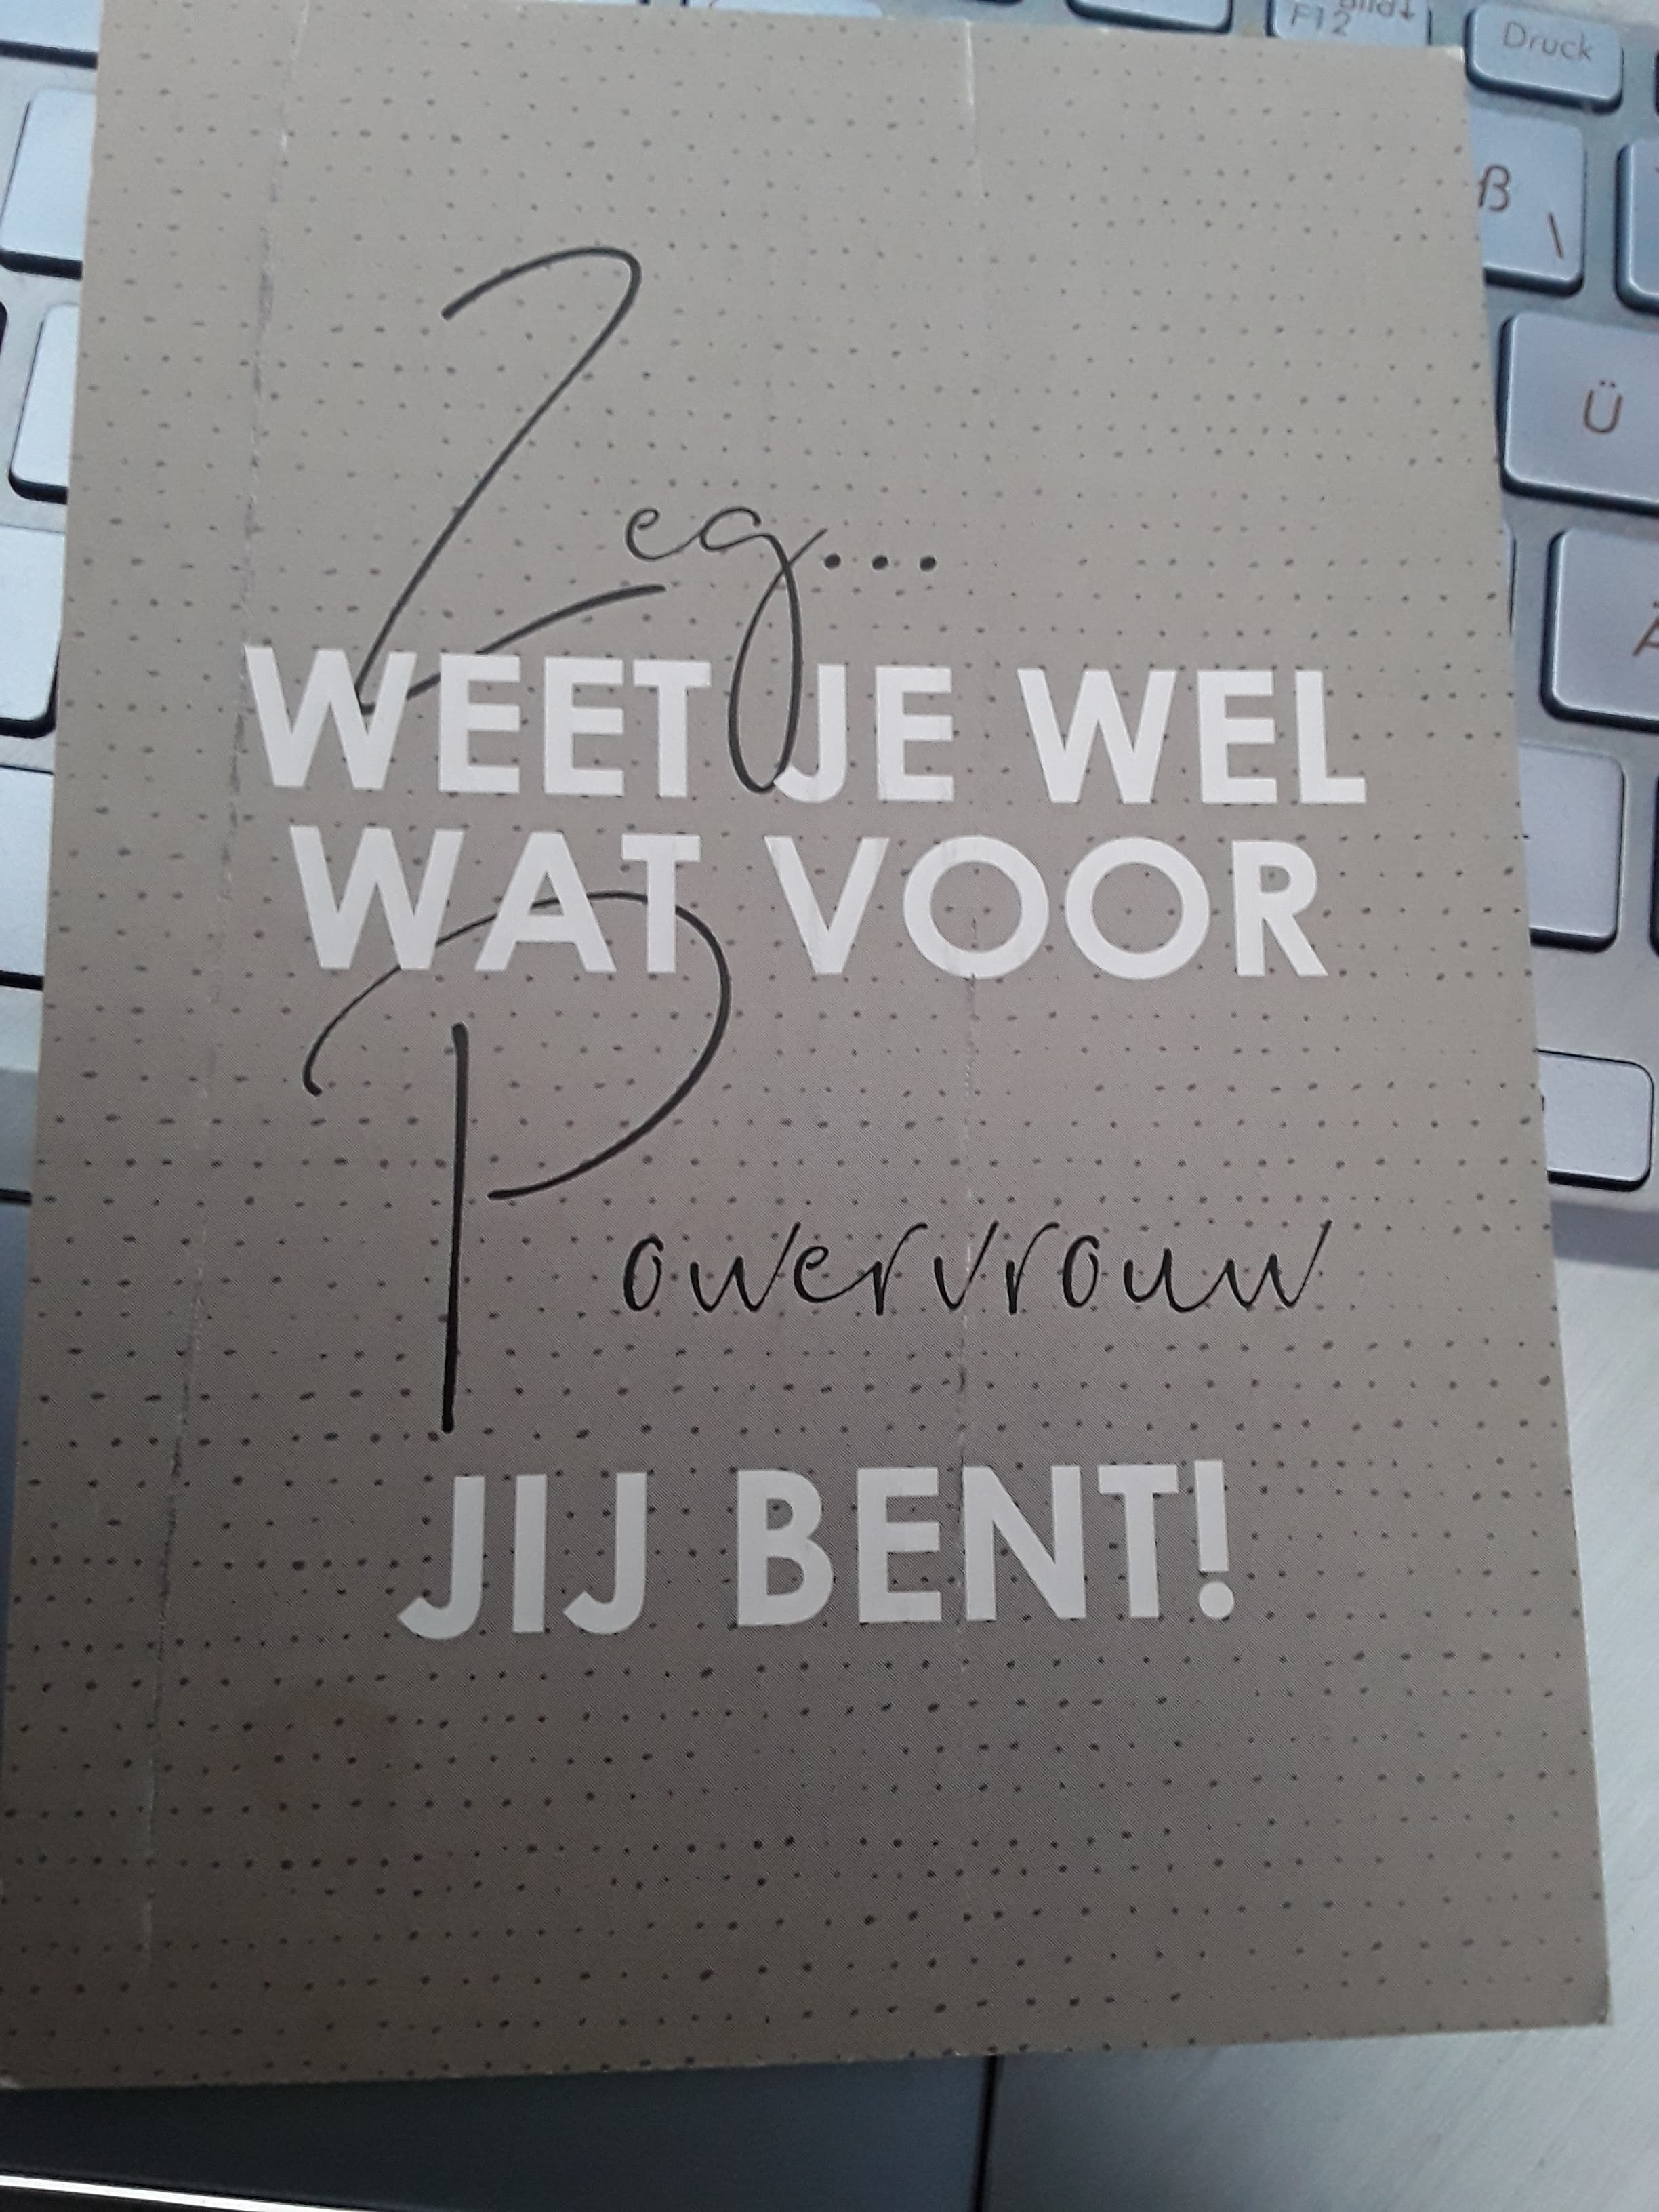 Bild↓
F12
Druck
ß
\
Ü
Ä
Zeg...
WEET JE WEL
WAT VOOR
Powervrouw
JIJ BENT!